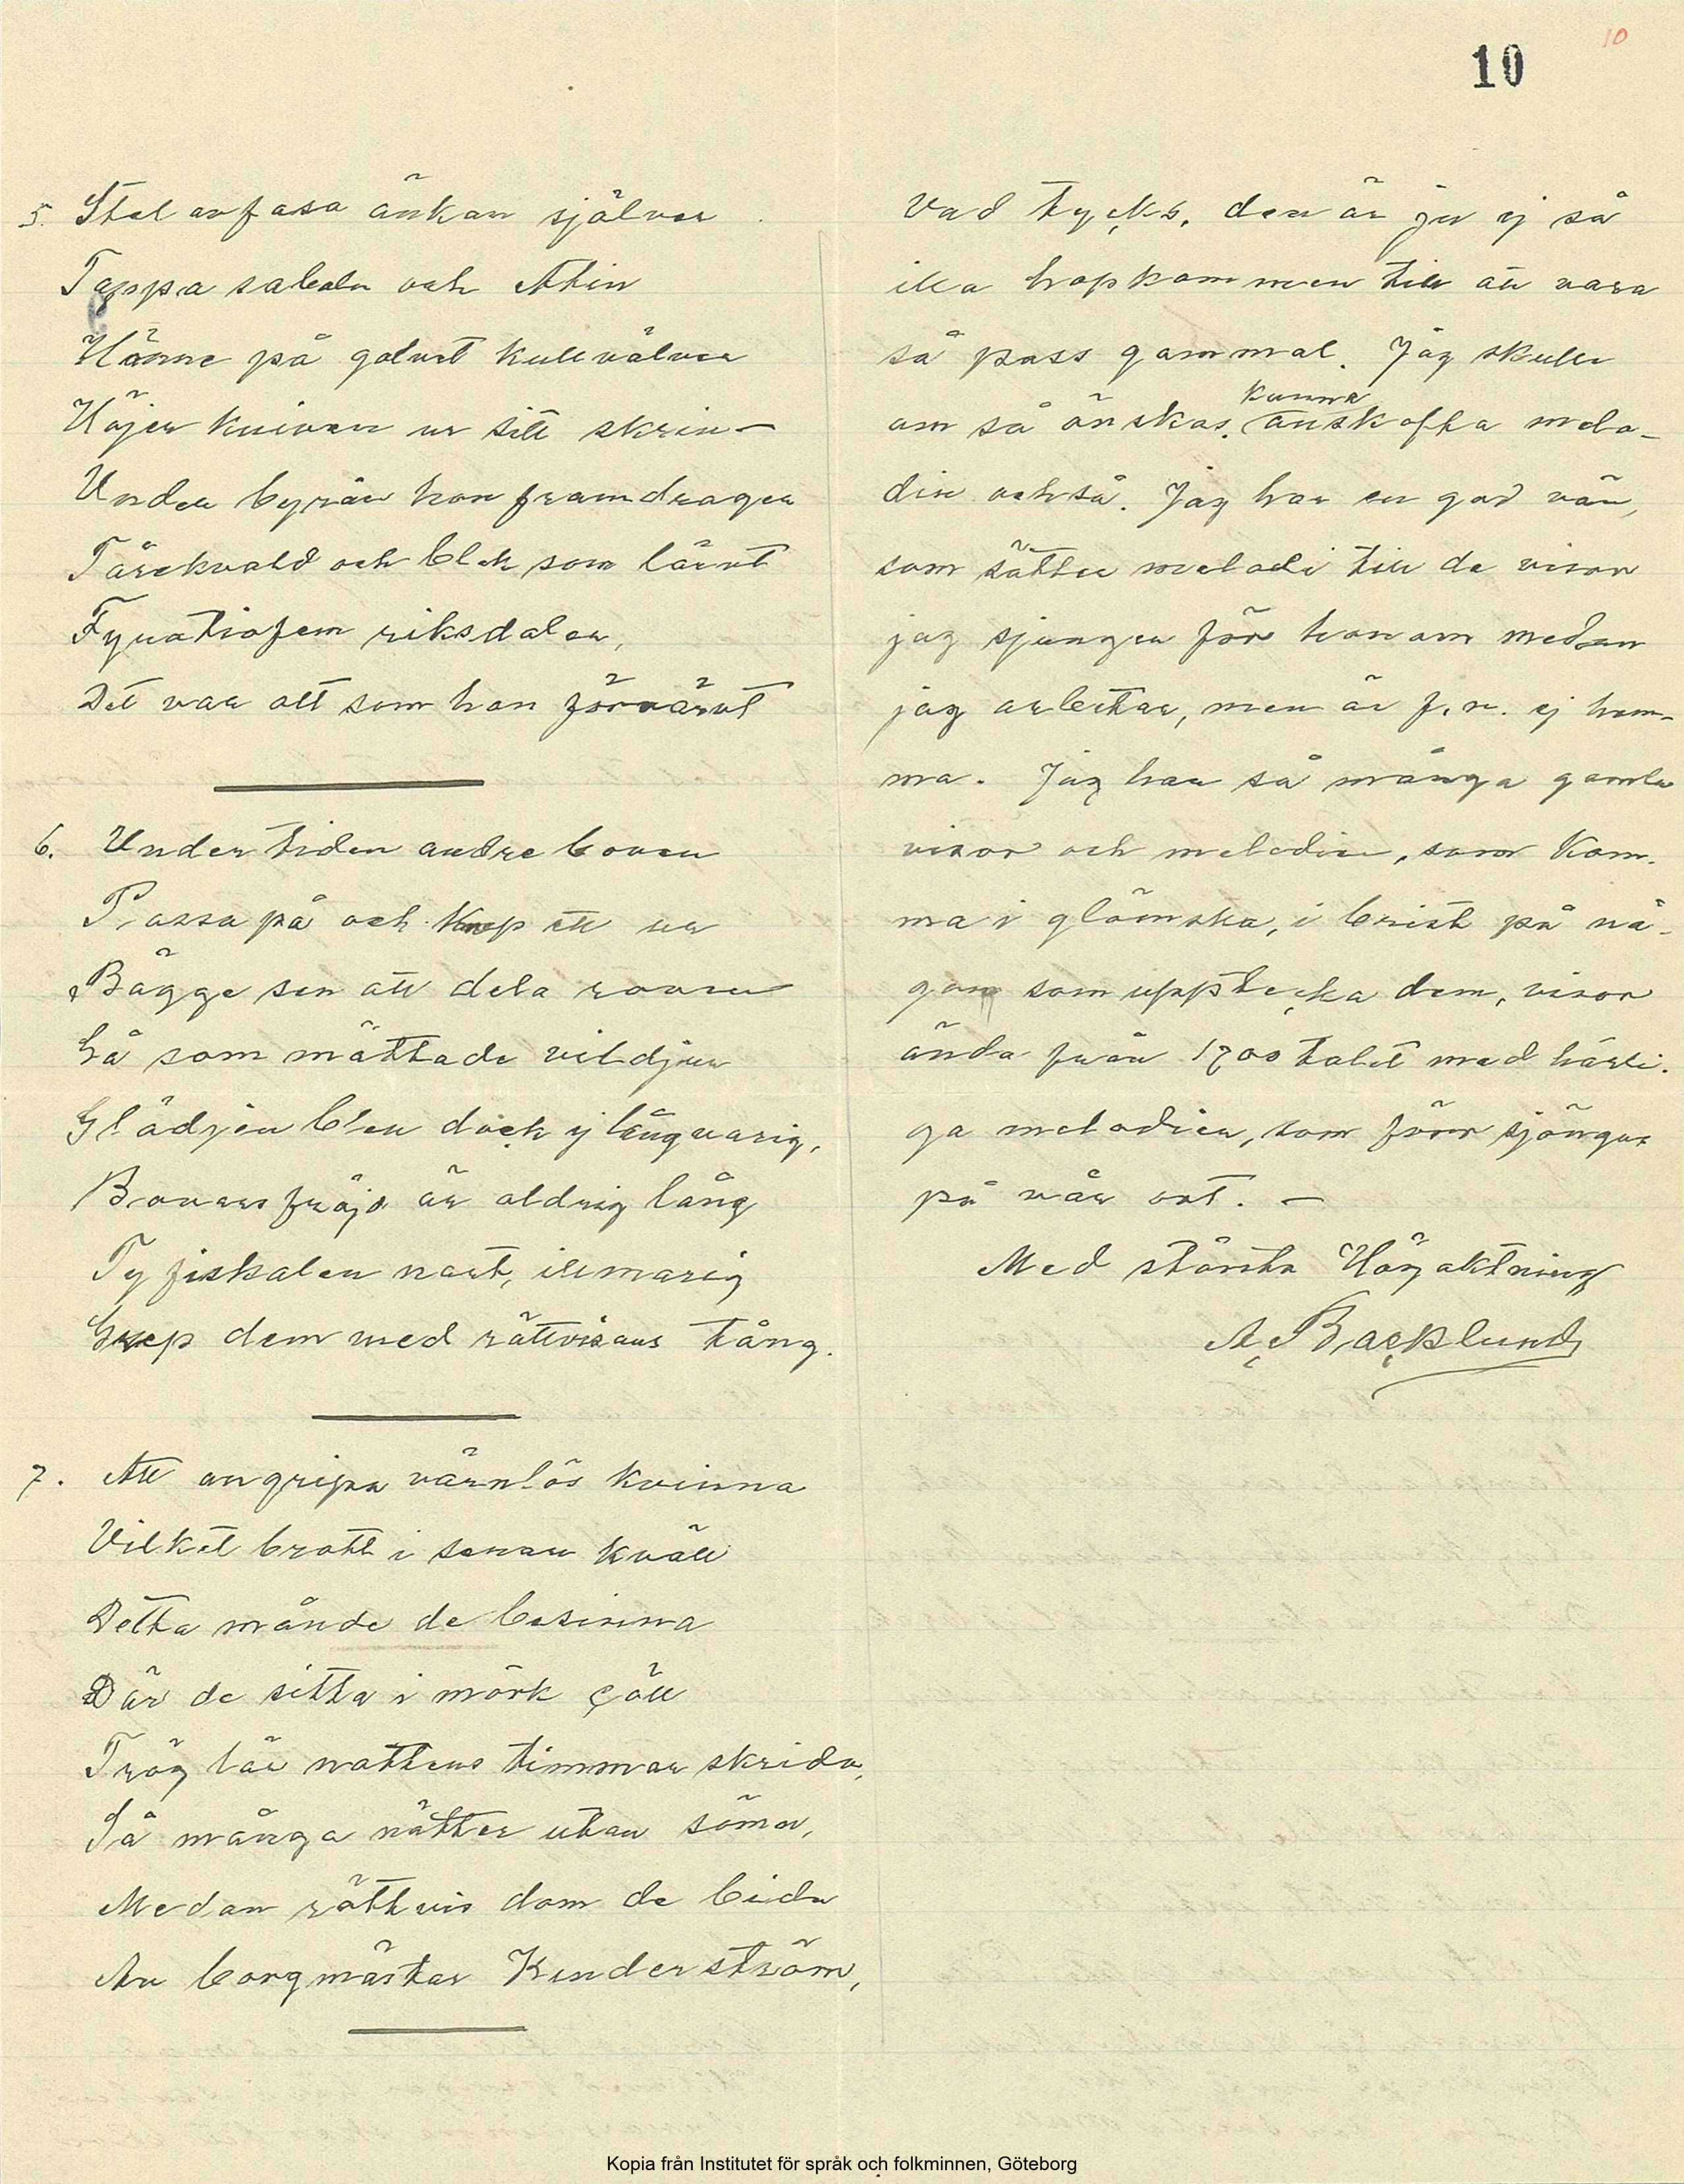 10
10
5. Stel av fasa änkan själver
Tappa sabeln och
Hänne på golvet kullvälver
Höjer kniven ur sitt skrin –
Under byrån han framdrager
Tärekvald och blek som lärvt
Fyratiofem riksdaler,
Det var allt som hon förvärvt
6. Under tiden andre boven
Passa på och knep ett ur
Bägge sen att dela roven
Gå som mättade vilddjur
Glädjen blev dock ej långvarig,
Bovars fröjd är aldrig lång
Ty fiskalen snart, illmarig
Grep dem med rättvisans tång.
7. Att angripa värnlös kvinna
Vilket brott i senan kväll
Detta månde de besinna
Där de sitta i mörk çäll
Trög lär nattens timmar skrida,
Så många nätter utan sömn,
Medan rättvis dom de bida
Av borgmästar Kinderström,
Vad tycks, den är ju ej så
illa hopkommen till att vara
så pass gammal. Jag skulle
kunna
om så önskas, anskaffa melo-
din också. Jag har en god vän,
som sätter melodi till de visor
jag sjunger för honom medan
jag arbetar, men är f.n. ej hem-
ma. Jag har så många gamla
visor och melodier, som kom-
ma i glömska, i brist på nå-
gon som uppteckna dem, visor
ända från 1700 talet med härli-
ga melodier, som förr sjöngos
på vår ort. –
Med största Högaktning
A. Backlund
Kopia från Institutet för språk och folkminnen, Göteborg